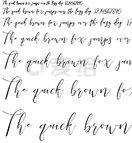 The quick brown fox jumps over the lazy dog. 1234567890
The quick brown fox jumps over the lazy dog. 1234567890
The quick brown fox jumps over the lazy dog. 12
The quick brown fox jumps over
The quick brown fox jum
The quick brown fox
The quick brown
The quick brown